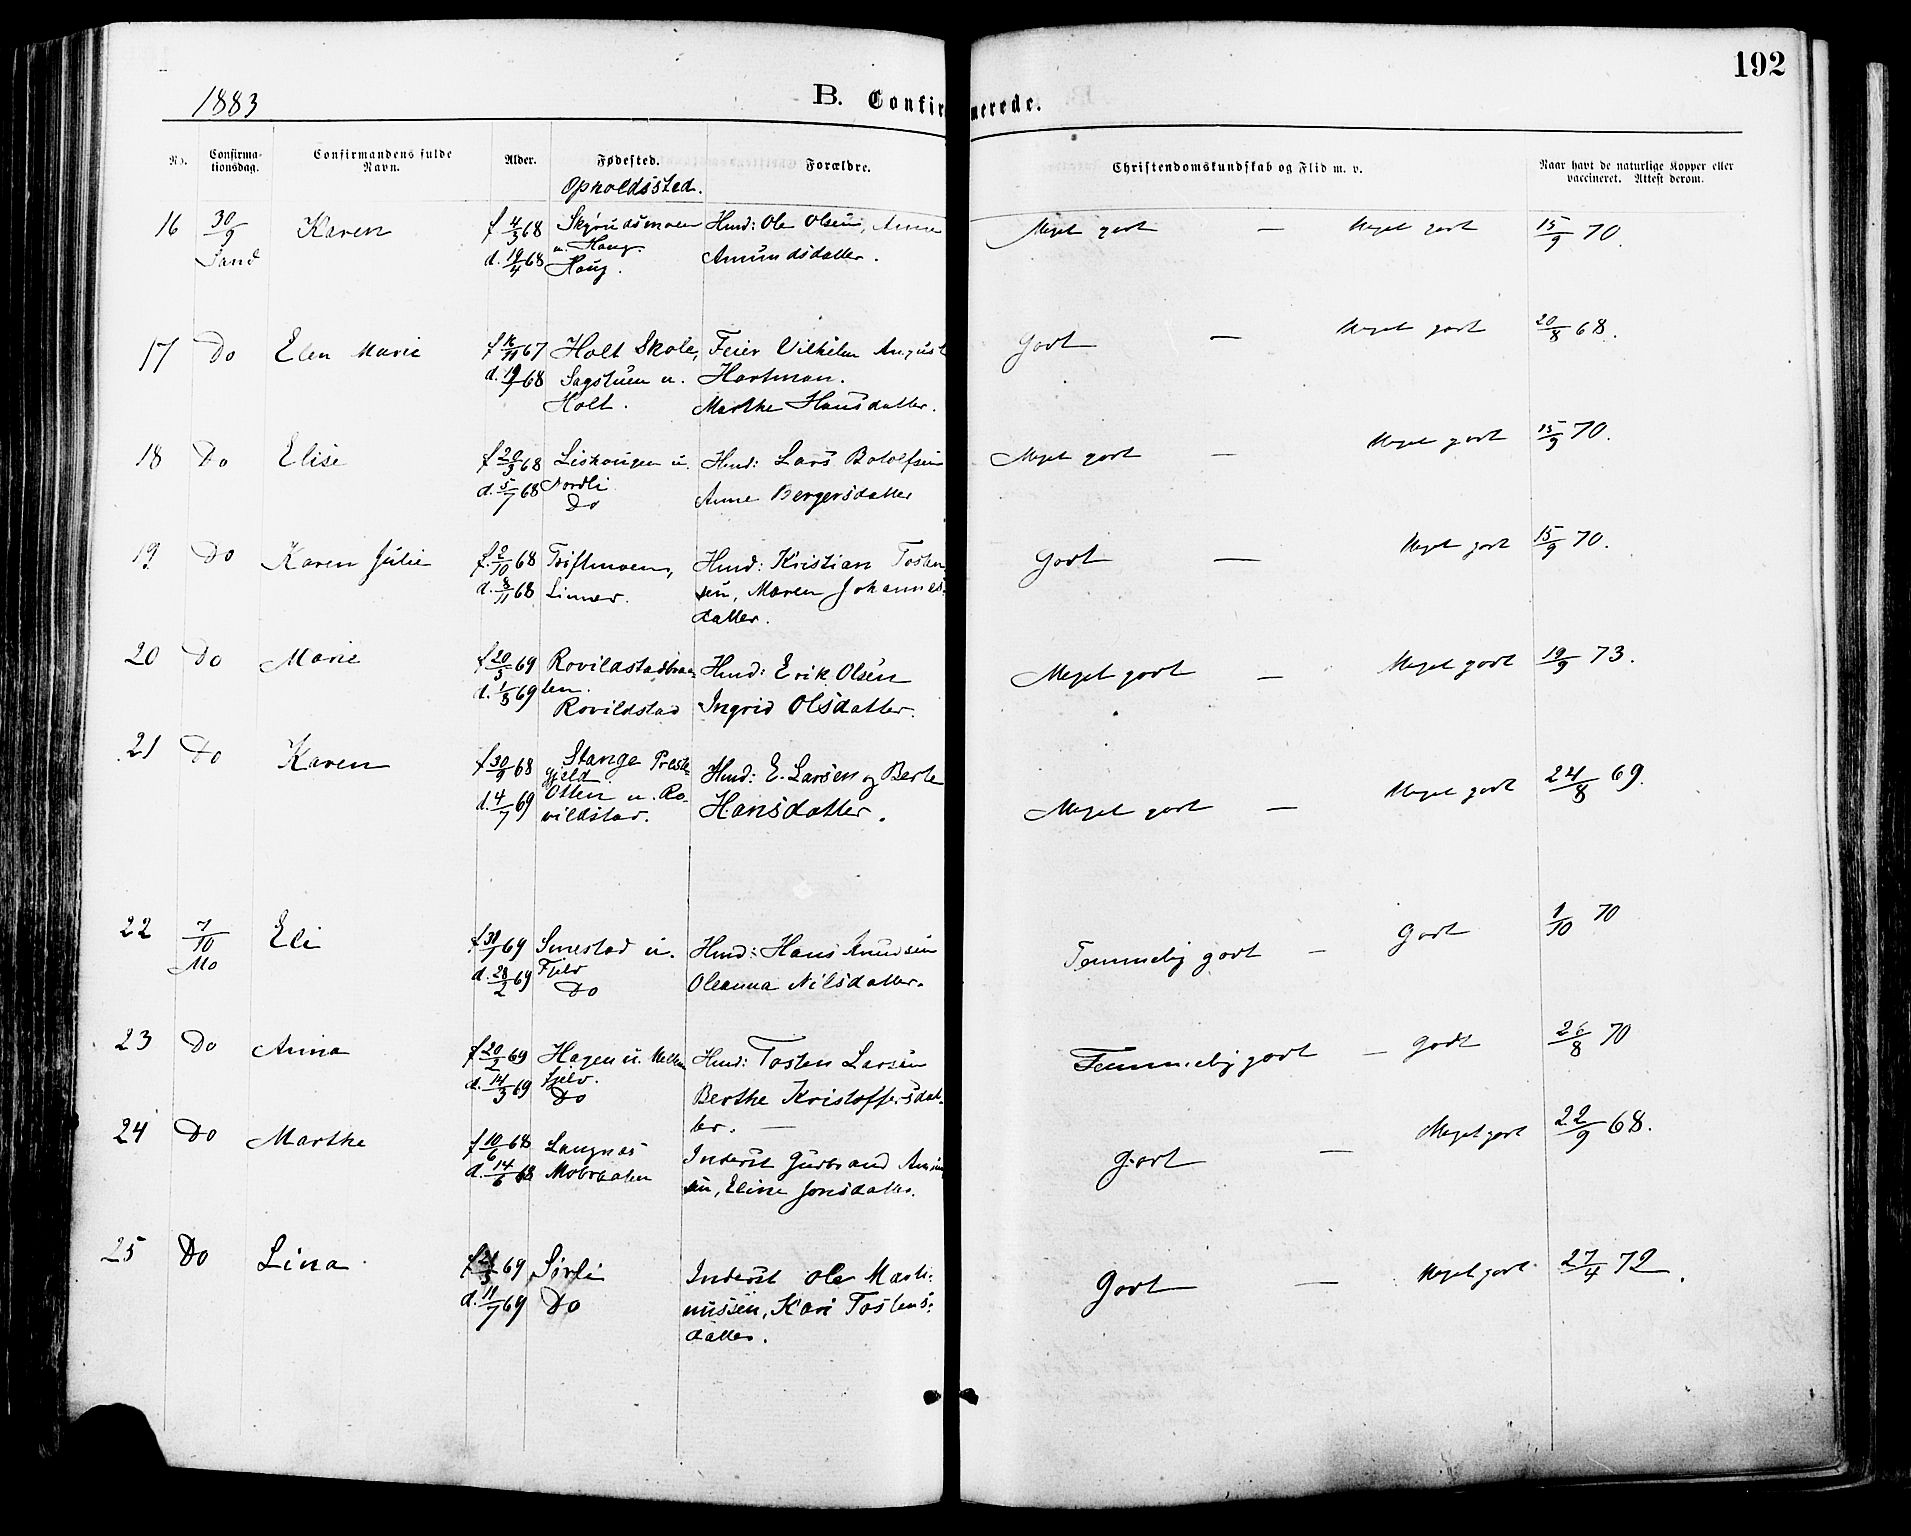 192
1883
B. Confirmerede.
No. Confirmationsdag. Confirmandens fulde Navn. Alder. Fødested. Forældre. Christendomskundskab og Flid m. v. Naar havt de naturlige Kopper eller vaccineret. Attest derom.
Opholdssted.
16 30/9 Karen f 4/3 68 Skyrudsmoen Hmd: Ole Olsen, Anne Meget godt — Meget godt 15/9 70.
Sand d. 19/4 68 u. Haug. Amundsdatter.
Haug.
17 Do Elen Marie f 16/11 67 Holt Skole, Feier Vilhelm August Godt — Meget godt 20/8 68.
d. 19/1 68 Sagstuen u. Hartman.
Holt. Marthe Hansdatter.
18 Do Elise f 20/3 68 u. Hmd: Lars Botolfsen Meget godt — Meget godt 15/9 70.
d. 5/7 68 Nordli Anne Bergersdatter
Do
19 Do Karen Julie f. 2/10 68 Hmd: Kristian Tosten Godt — Meget godt 15/9 70.
d. 8/11 68 Linner. sen, Maren Johannes-
datter.
20 Do Marie f 20/3 69 Rovildstadbraa- Hmd: Erik Olsen Meget godt — Meget godt 19/9 73.
d. 69 ten. Ingrid Olsdatter.
Rovildstad
21 Do Karen f 30/9 68 Stange Preste- Hmd: E. Larsen og Berte Meget godt — Meget godt 24/8 69.
gjeld Hansdatter.
d. 4/7 69 Otten u. Ro-
vildstad.
22 7/10 Eli f 69 Smestad u. Hmd: Hans Knudsen Temmelig godt — Godt 1/10 70
Mo d. 28/2 69 Fjeld Oleanna Nilsdatter.
Do
23 Do Anna f 20/2 69 Hagen u. Mellem Hmd: Tosten Larsen Temmelig godt — godt 26/8 70
d. 14/3 69 fjeld. Berthe Kristoffersdat-
Do ter. —
24 Do Marthe f 10/6 68 Langnes Inderst Gudbrand Godt — Meget godt 22/9 68.
d. 14/6 68 Mobraaten sen, Eline Jonsdatter.
25 Do Lina f 69 Sørli Inderst Ole Marti- Godt — Meget godt 27/4 72.
d. 11/7 69 Do nussen, Kari Tostens-
datter.